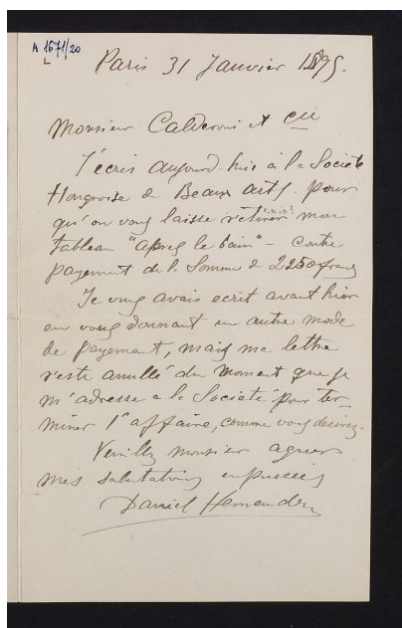 A 1671/20
Paris 31 Janvier 1895.
Monsieur Calderoni et Cie
J'écris aujourd'hui à la Société
Hongroise de Beaux arts pour
qu'on vous laisse retirer mon
tableau "après le bain" – contre
payement de la Somme de 2250 francs
Je vous avais ecrit avant hier
en vous donnant un autre mode
de payement, mais ma lettre
reste anullé du moment que je
m'adresse a la Société pour ter-
miner l'affaire, comme vous desirez.
Veuillez monsieur agreer
mes salutations
Daniel Hernandez